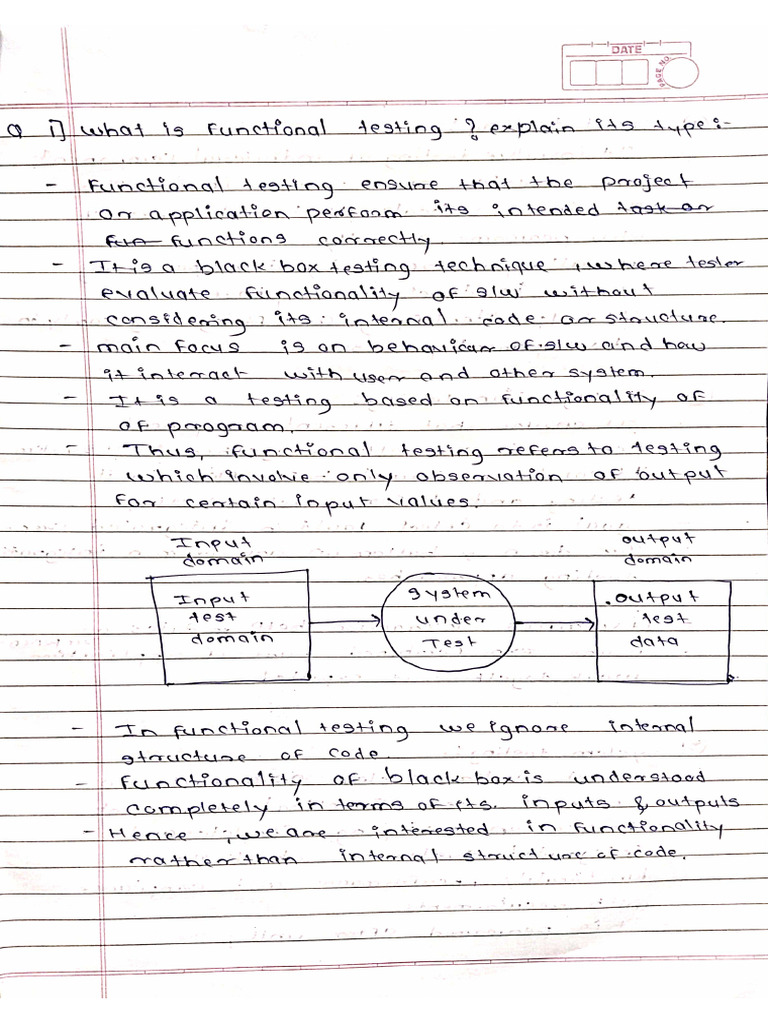 DATE
PAGE NO
Q 1] What is Functional testing ? explain its type:-
- Functional testing ensure that the project
or application perform its intended task or
fun functions correctly.
- It is a black box testing technique, where tester
evaluate functionality of s/w without
considering its internal code or structure.
- main focus is on behaviour of s/w and how
it interact with user and other system.
- It is a testing based on functionality of
of program.
- Thus, functional testing refers to testing
which invoke only observation of output
for certain input values.
Input output
domain domain
Input System output
test under test
domain Test data
- In functional testing we ignore internal
structure of code.
- functionality of black box is understood
completely in terms of its inputs & outputs
- Hence, we are interested in functionality
rather than internal structure of code.